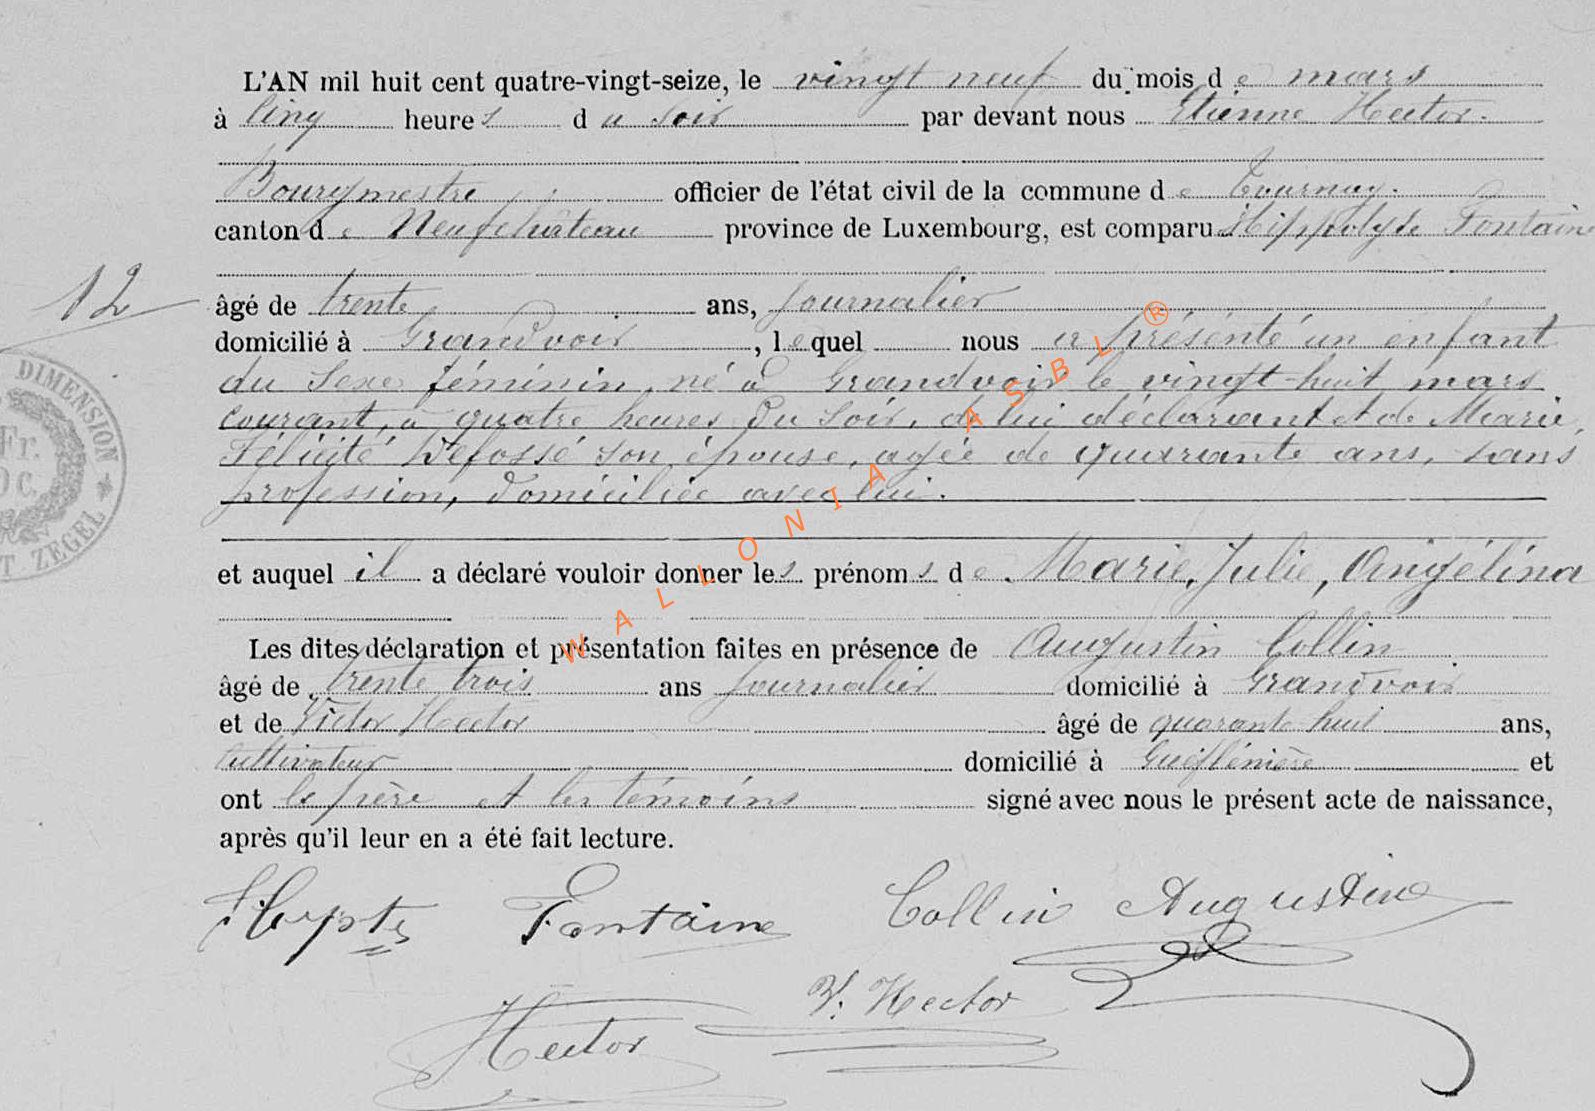 L'AN mil huit cent quatre-vingt-seize, le vingt neuf du mois de mars
à cinq heures du soir par devant nous Etienne Hector.
Bourgmestre officier de l'état civil de la commune de Tournay.
canton de Neufchâteau province de Luxembourg, est comparu Hippolyte Fontaine
12
âgé de trente ans, journalier
domicilié à Grandvoir, lequel nous a présenté un enfant
DIMENSION
du sexe féminin, né à Grandvoir le vingt-huit mars
courant, à quatre heures du soir, de lui déclarant et de Marie,
Fr.
Félicité Defossé son épouse, agée de quarante ans, sans
profession, domiciliée avec lui.
ZEGEL
et auquel il a déclaré vouloir donner les prénoms de Marie, Julie, Angélina
Les dites déclaration et présentation faites en présence de Augustin Collin
âgé de trente trois ans journalier domicilié à Grandvoir
et de Victor Hector âgé de quarante huit ans,
cultivateur domicilié à et
ont le père et les témoins signé avec nous le présent acte de naissance,
après qu'il leur en a été fait lecture.
Hypte Fontaine Collin Augustin
V. Hector
Hector
WALLONIA ASBL ®